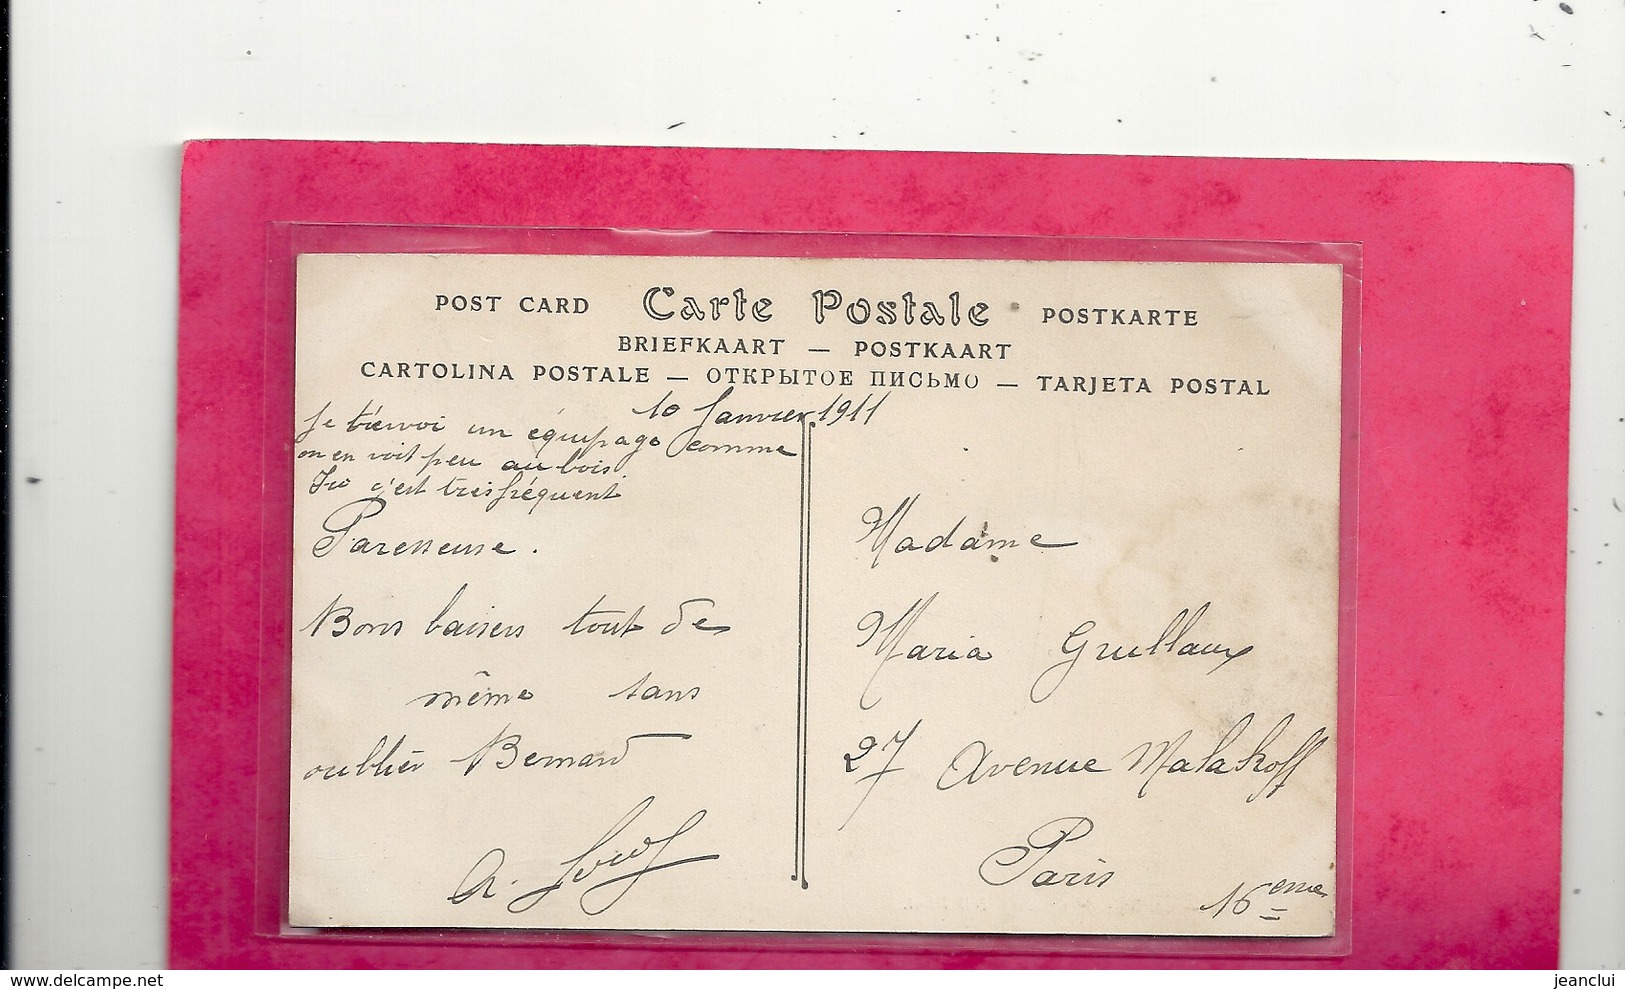 POST CARD Carte Postale POSTKARTE
BRIEFKAART — POSTKAART
CARTOLINA POSTALE — ОТКРЫТОЕ ПИСЬМО — TARJETA POSTAL
10 Janvier 1911
Je t'envoi un équipage comme
on en voit peu au bois
c'est très fréquent
Paresseuse.
Bons baisers tout de
même sans
oublier Bernard
A.
Madame
Maria Guillaux
27 Avenue Malakoff
Paris
16eme
delcampe.net
jeanclui